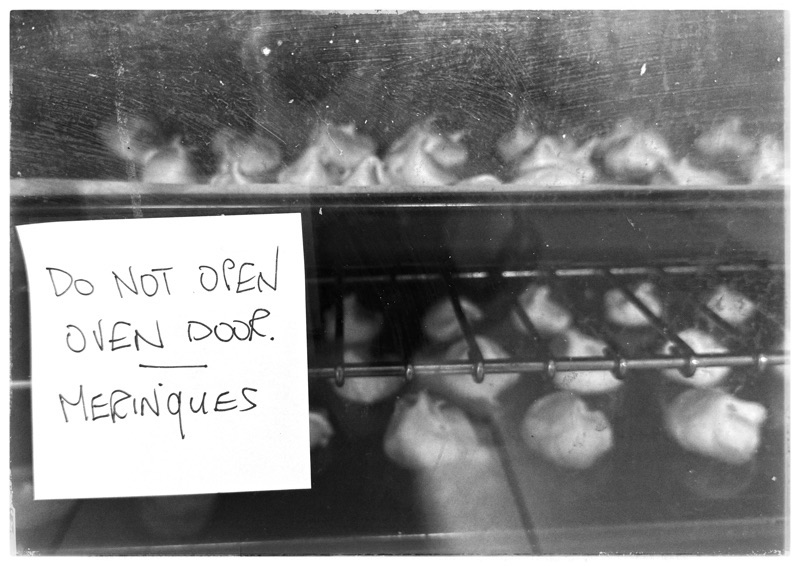 DO NOT OPEN
OVEN DOOR.
MERINQUES